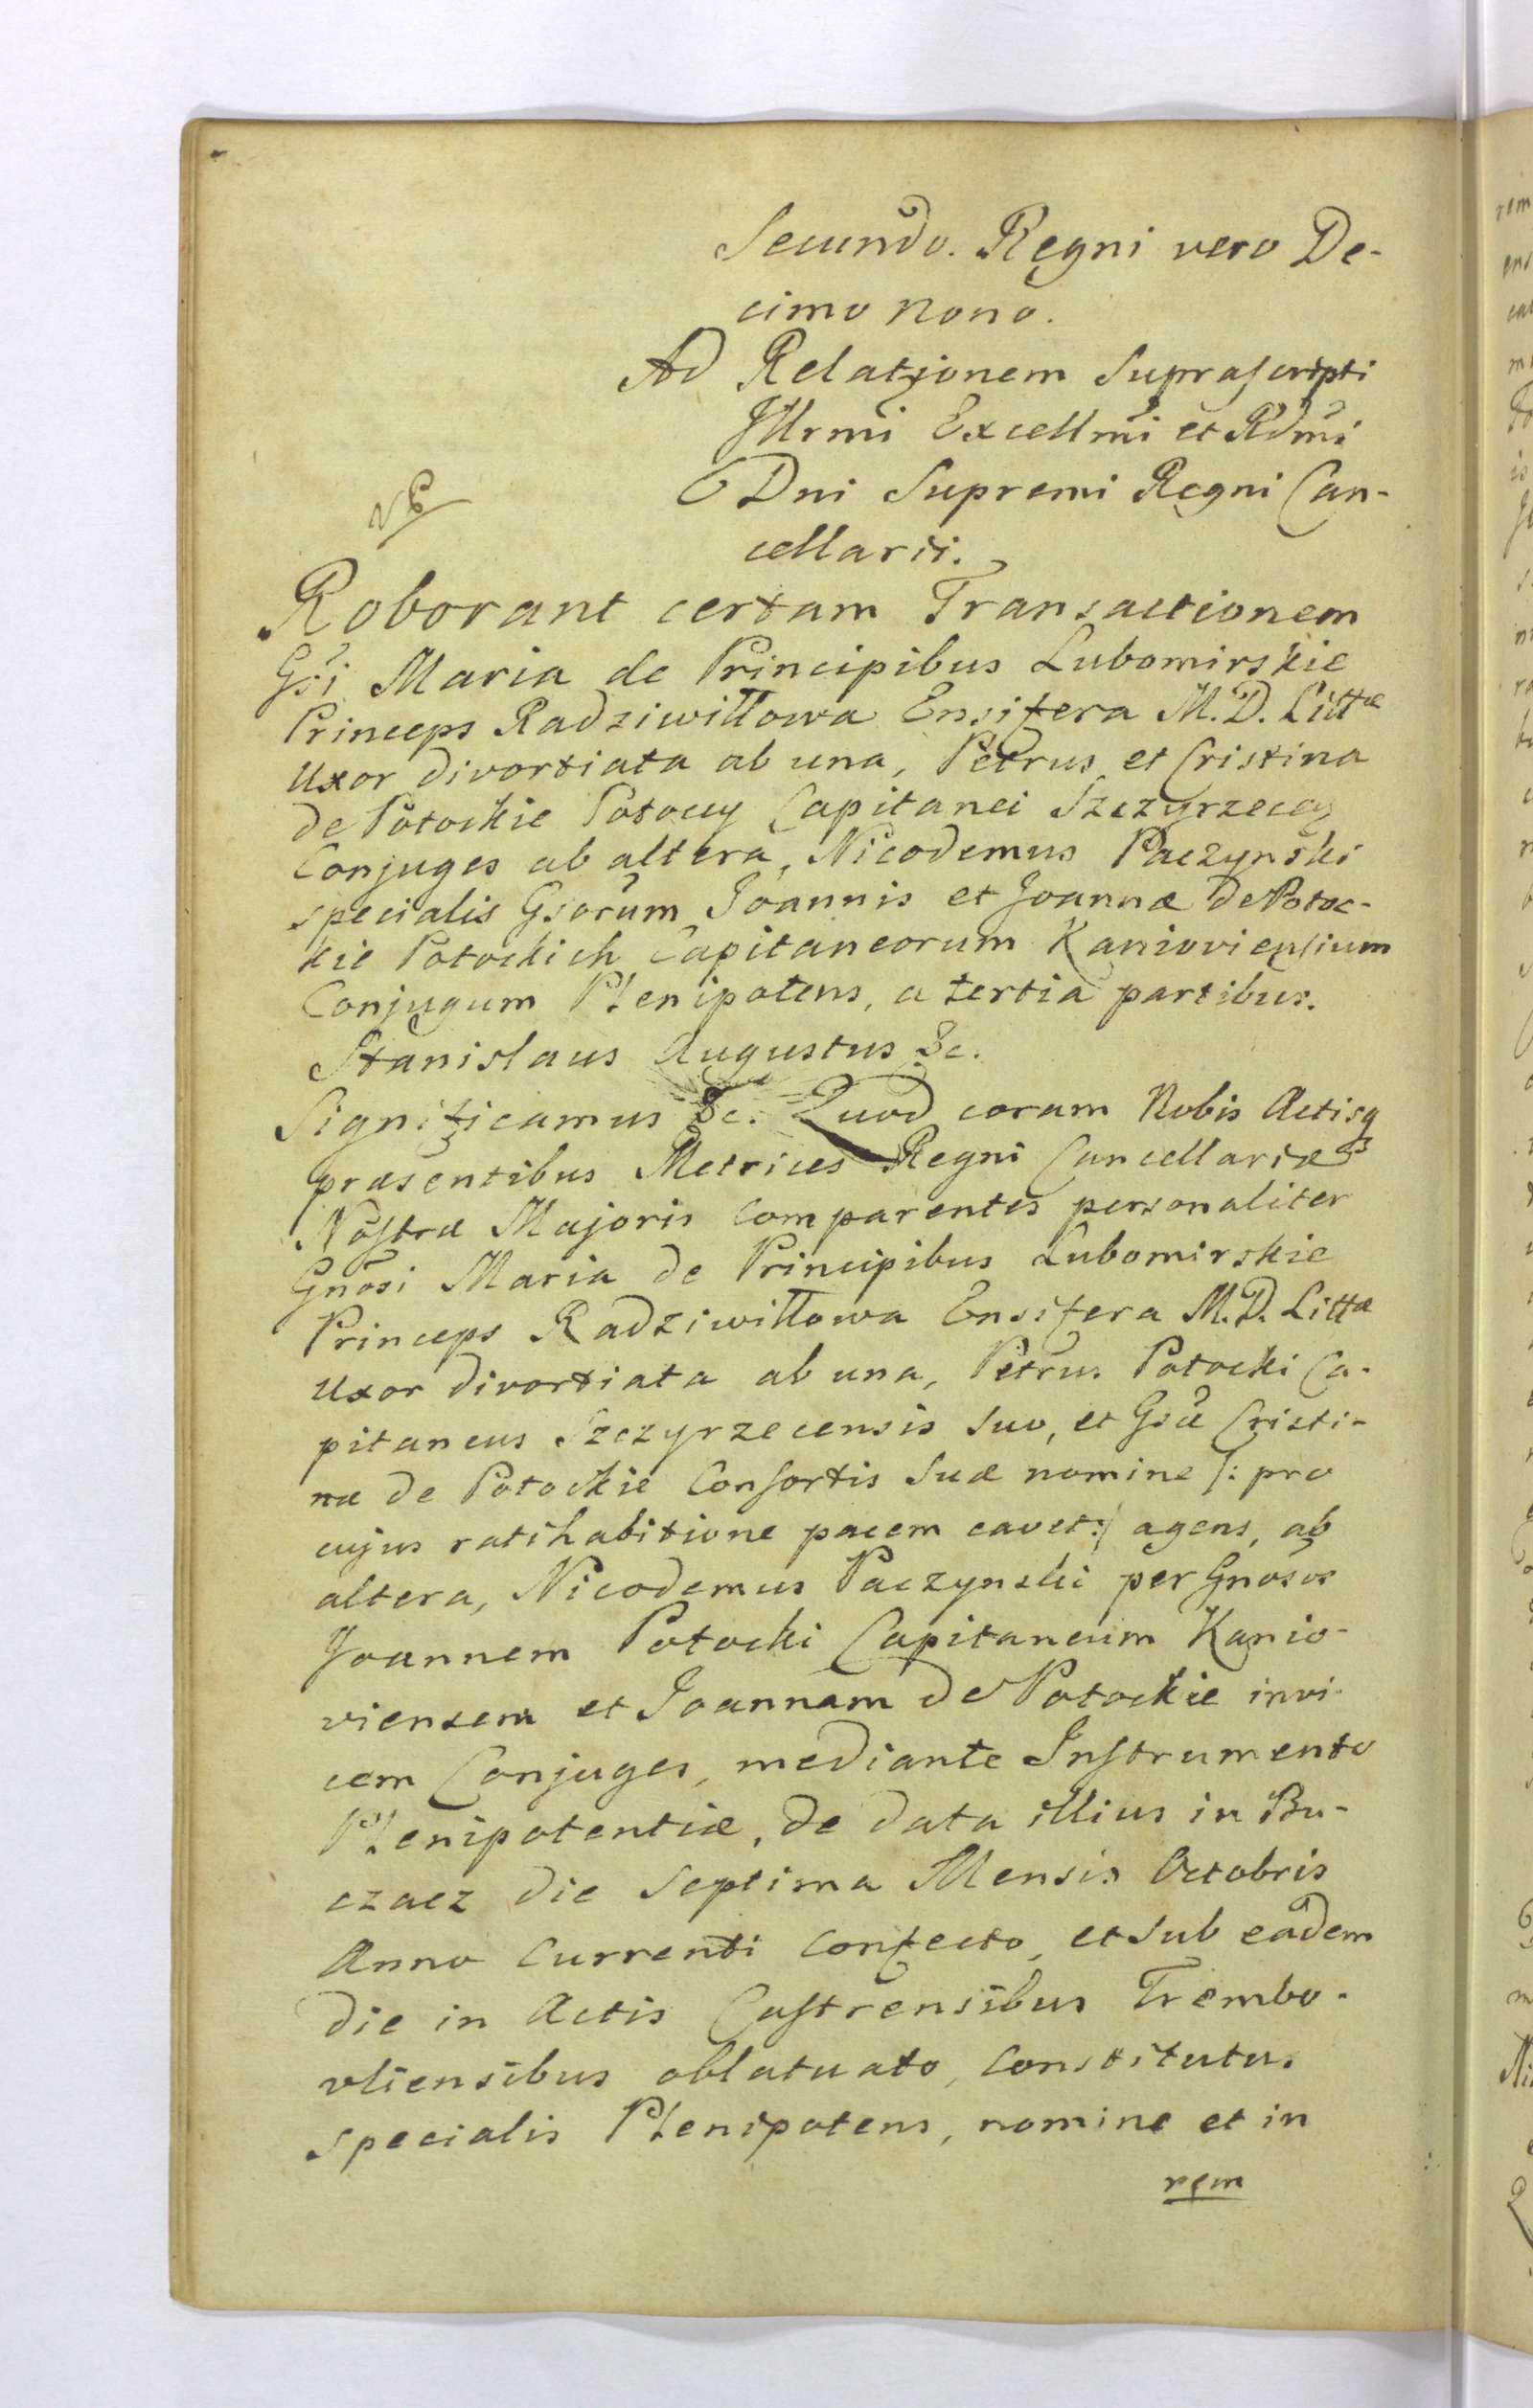 Secundo. Regni vero De-
cimo nono.
Ad Relationem Suprascripti
Illrmi Excellmi et Rdmi
Dni Supremi Regni Can-
cellarii.
Roborant certam Transactionem
Gsi Maria de Principibus Lubomirskie
Princeps Radziwiłłowa Ensifera M.D. Littæ
Uxor divortiata ab una, Petrus et Cristina
de Potockie Potoccy Capitanei Szczyrzecen
Conjuges ab altera, Nicodemus Paczynski
specialis Gsorum Joannis et Joannæ de Potoc-
kie Potockich Capitaneorum Kanioviensium
Conjugum Plenipotens, a tertia partibus.
Stanislaus Augustus &c.
Significamus &c. Quod coram Nobis Actisq
præsentibus Metrices Regni Cancellariæ
Nostræ Majoris comparentes personaliter
Gnosi Maria de Principibus Lubomirskie
Princeps Radziwiłłowa Ensifera M.D. Littæ
Uxor divortiata ab una, Petrus Potocki Ca-
pitaneus Szczyrzecensis suo, et Gsæ Cristi-
næ de Potockie Consortis suæ nomine /: pro
cujus ratihabitione pacem cavet :/ agens, ab
altera, Nicodemus Paczynski per Gnosos
Joannem Potocki Capitaneum Kanio-
viensem et Joannam de Potockie invi-
cem Conjuges, mediante Instrumento
Plenipotentiæ, de data illius in Bu-
czacz die septima Mensis Octobris
Anno currenti confecto, et sub eâdem
die in Actis Castrensibus Trembo-
vliensibus oblatuato, constitutus
specialis Plenipotens, nomine et in
rem